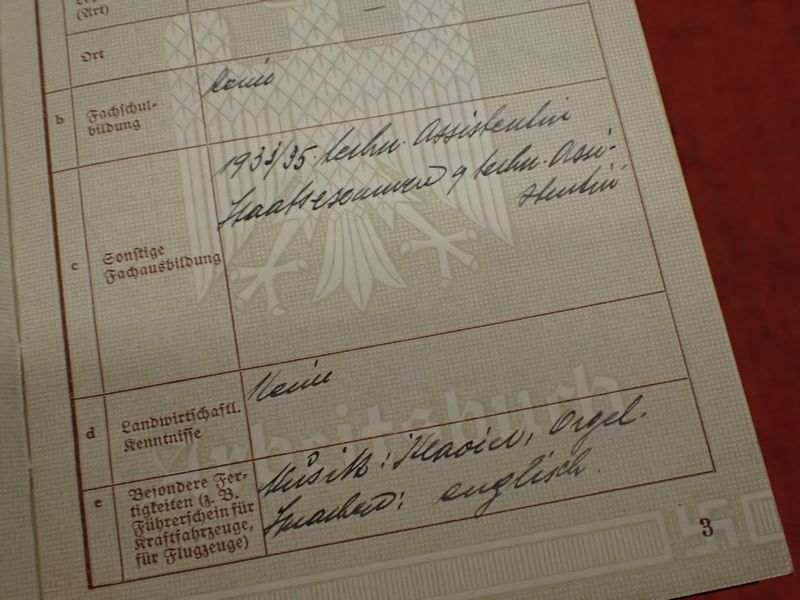 (Art)
Ort
b Fachschul-
bildung
keine
c Sonstige
Fachausbildung
1933/35 techn. Assistentin
Staatsexamen techn. Assi-
stentin
d Landwirtschaftl.
Kenntnisse
Keine
Arbeitsbuch
e Besondere Fer-
tigkeiten (z. B.
Führerschein für
Kraftfahrzeuge,
für Flugzeuge)
Musik: Klavier, Orgel.
Sprachen: englisch.
3